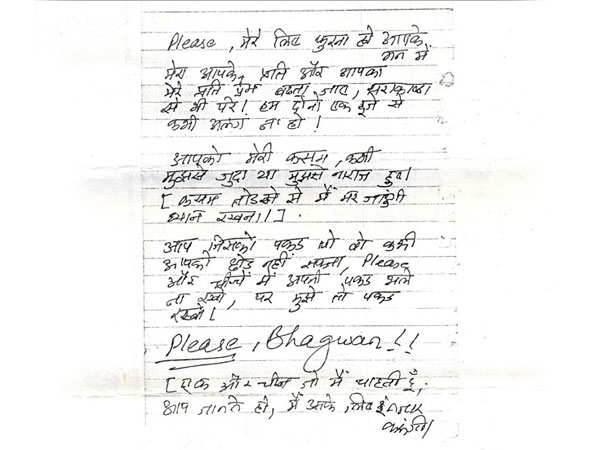 Please, मेरे लिए फुरना हो आपके
मन में
मेरा आपके प्रति और आपका
मेरे प्रति प्रेम बढता जाए, पराकाष्ठा
से भी परे! हम दोनों एक दूजे से
कभी अलग न हो!
आपको मेरी कसम, कभी
मुझसे जुदा या मुझसे नाराज हुए।
[कसम तोडने से मैं मर जाउंगी
ध्यान रखना।].
आप जिसको पकड लो वो कभी
आपको छोड नहीं सकता, Please,
और चीजों में अपनी पकड भले
ना रखो, पर मुझे तो पकड
रखो।
Please, Bhagwan!!
[एक और चीज जो मैं चाहती हूँ,
आप जानते हो, मैं उसके लिए
करूंगी।